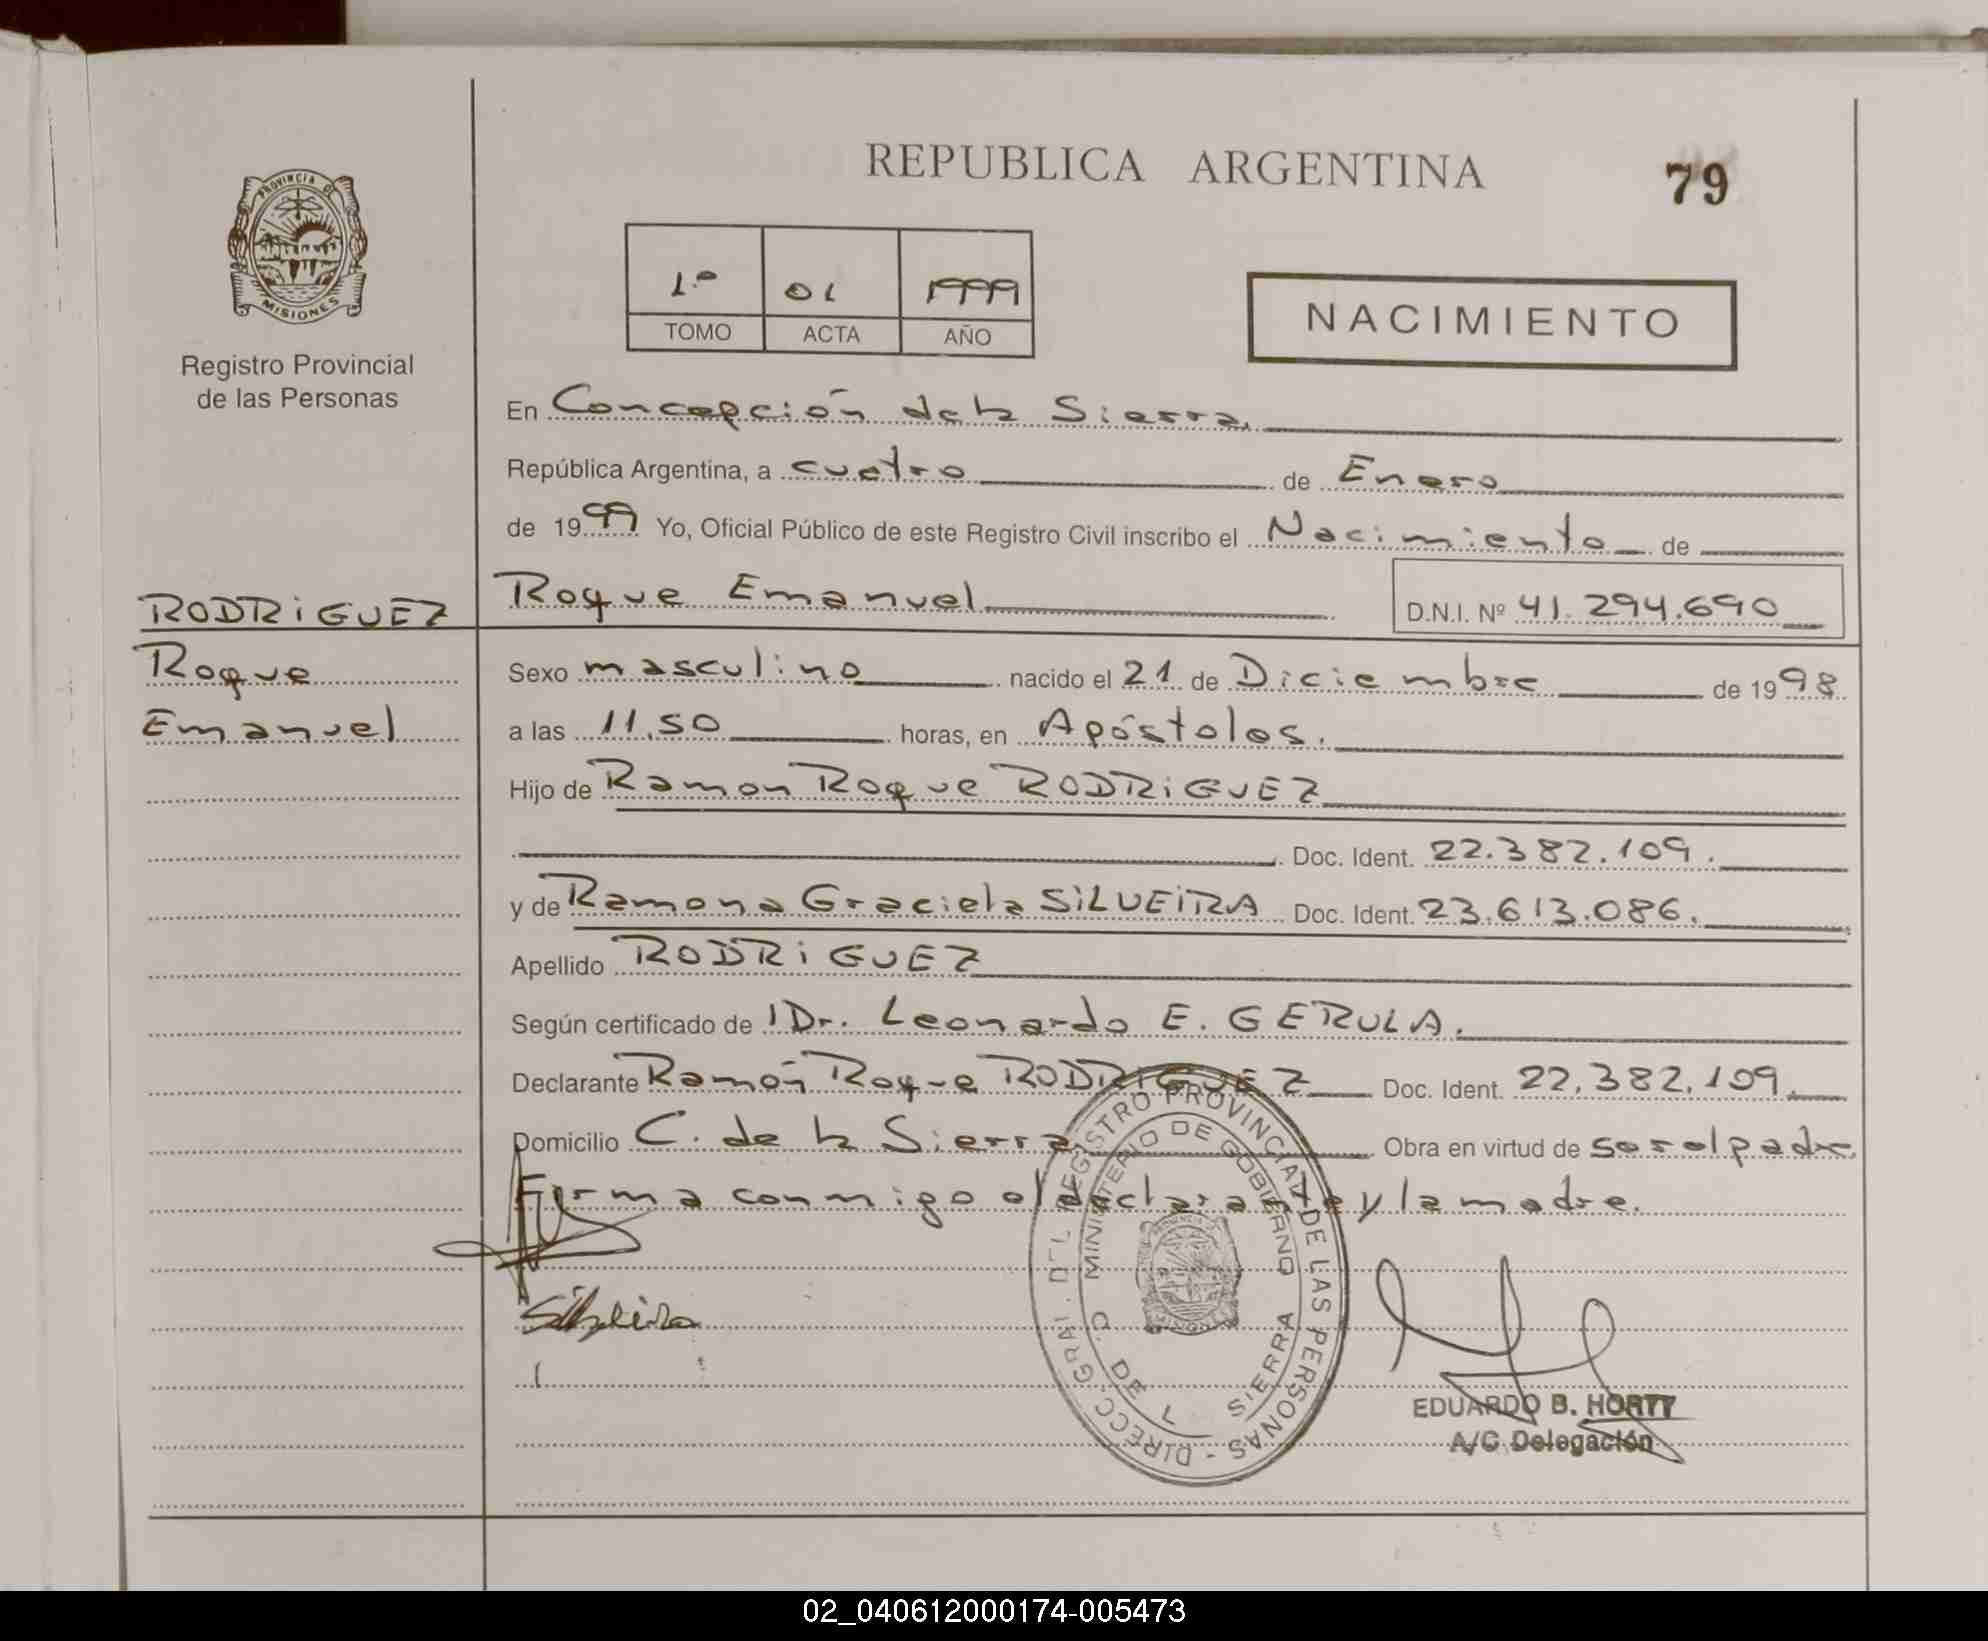 REPUBLICA ARGENTINA
79
PROVINCIA DE
MISIONES
Registro Provincial
de las Personas
1.º 01 1999
TOMO ACTA AÑO
NACIMIENTO
En Concepción de la Sierra.
República Argentina, a cuatro de Enero
de 1999 Yo, Oficial Público de este Registro Civil inscribo el Nacimiento de
RODRIGUEZ
Roque
Emanuel
Roque Emanuel D.N.I. Nº 41.294.690
Sexo masculino nacido el 21 de Diciembre de 1998
a las 11.50 horas, en Apóstoles.
Hijo de Ramon Roque RODRIGUEZ
Doc. Ident. 22.382.109.
y de Ramona Graciela SILVEIRA Doc. Ident. 23.613.086.
Apellido RODRIGUEZ
Según certificado de Dr. Leonardo E. GERULA.
Declarante Ramón Roque RODRIGUEZ Doc. Ident. 22.382.109.
Domicilio C. de la Sierra Obra en virtud de ser el padre.
Firma conmigo el declarante y la madre.
Silveira
DIRECC. GRAL. DEL REGISTRO PROVINCIAL DE LAS PERSONAS -
MINISTERIO DE GOBIERNO
DE L SIERRA
EDUARDO B. HORTT
A/C Delegación
02_040612000174-005473